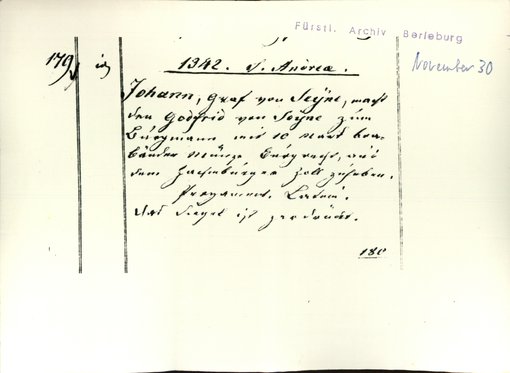 Fürstl. Archiv Berleburg
November 30
179
1342. S. Andreæ.
Johann, Graf von Seÿne, macht
den Godfrid von Seÿne zum
Burgmann mit 10 Mark bra-
bänder Münze, Burgrecht, aus
dem Hachenburger Zoll zu heben.
Pergament. Latein.
Das Siegel ist zerbrochen.
180